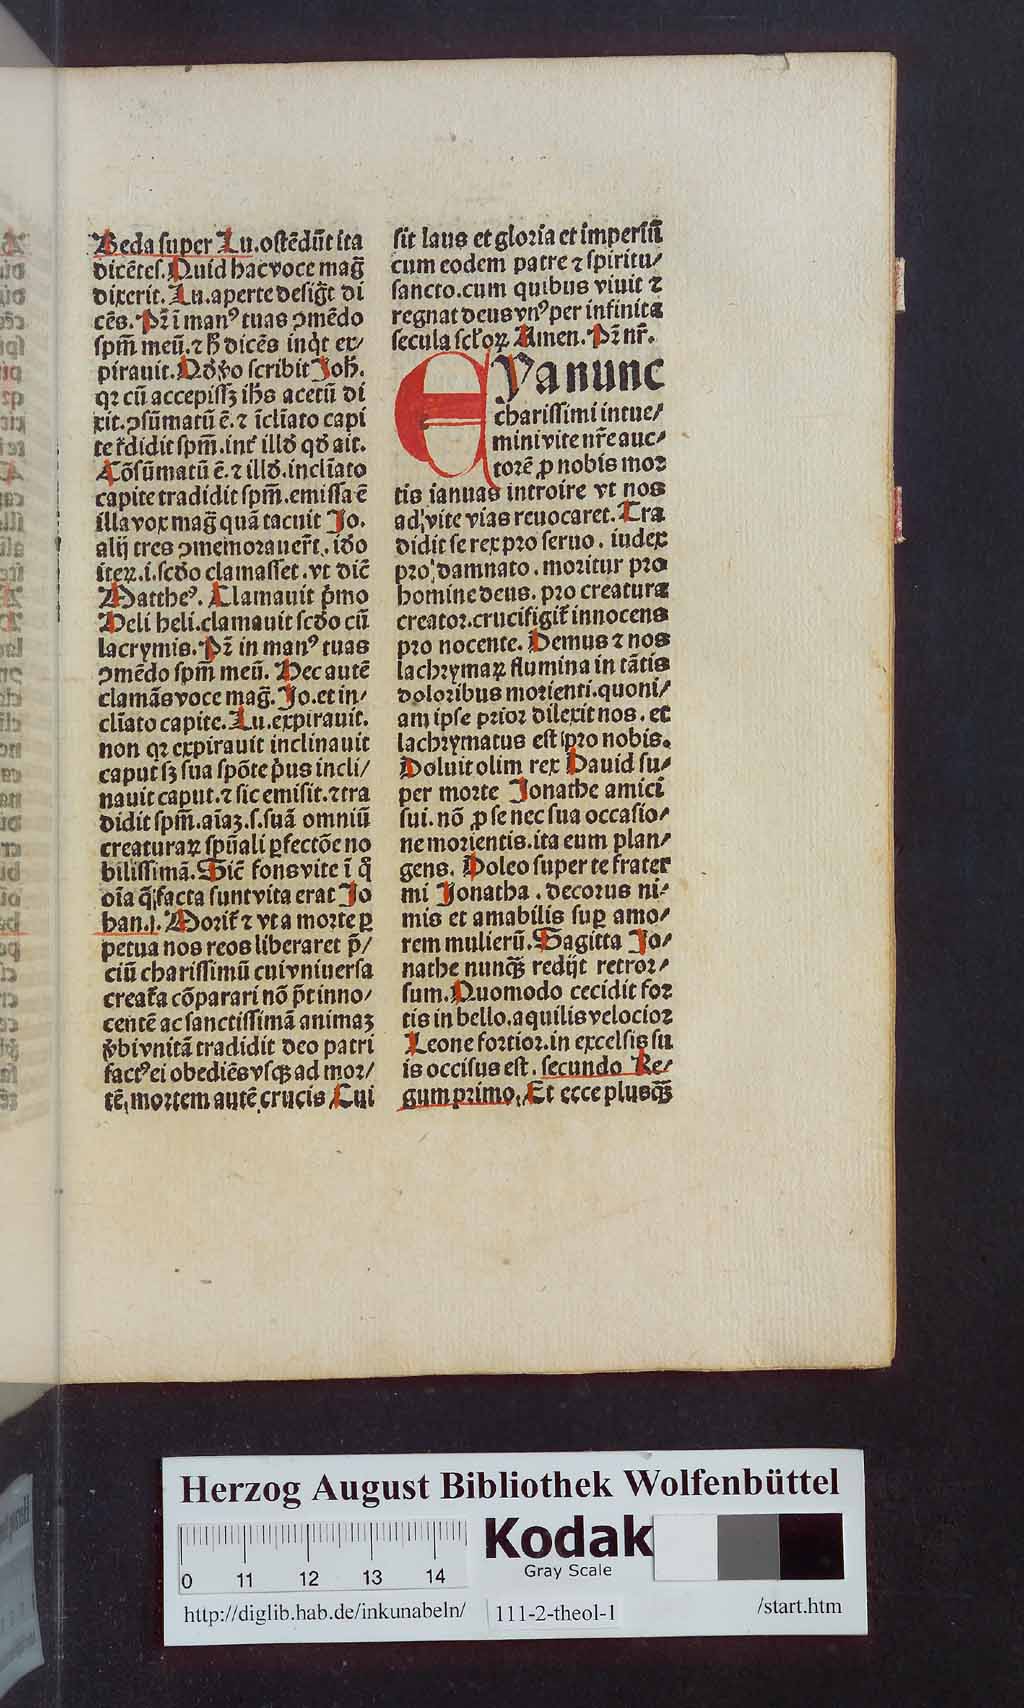 Beda super Lu.ostēdūt ita
dicētes.Quid hac voce mag̃
dixerit.Lu.aperte desigt̃ di
cēs.Pr̄ ī manꝰ tuas ꝯmēdo
spm̄ meū.⁊ h̄ dicēs inq̇t ex⸗
pirauit.Qd̄ v̊o scribit Joh̄.
qꝛ cū accepissꝫ ih̄s acetū di
xit.ꝯsūmatū ē.⁊ īcliato capi
te tr̄didit spm̄.int̄ illd̄ qd̄ ait.
Cōsūmatū ē.⁊ illd̄.incliato
capite tradidit spm̄.emissa ē
illa vox mag̃ quā tacuit Jo.
alij tres ꝯmemorauer̄t.ido
iteꝝ.i.scd̄o clamasset.vt dic̄
Mattheꝰ.Clamauit p̄mo
Heli heli.clamauit scd̄o cū
lacrymis.Pr̄ in manꝰ tuas
ꝯmēdo spm̄ meū. Hec autē
clamās voce mag̃.Jo.et in⸗
cliato capite.Lu.expirauit.
non qꝛ expirauit inclinauit
caput sꝫ sua spōte p̄us incli⸗
nauit caput.⁊ sic emisit.⁊tra
didit spm̄.aīaꝫ.s.suā omniū
creaturaꝝ spūali ꝑfectōe no
bilissimā.Sic̄ fons vite ī q̊
oīa q̄ facta sunt vita erat Jo
han.j. Morit̄ ⁊ vt a morte ꝑ
petua nos reos liberaret p̄⸗
ciū charissimū cui vniuersa
creat̄a cōparari nō p̄t inno⸗
centē ac sanctissimā animaꝫ
v̄bi vnitā tradidit deo patri
factꝰ ei obediēs vsqꝫ ad mor⸗
tē,mortem autē crucis Cui
sit laus et gloria et imperiū
cum eodem patre ⁊ spiritu⸗
sancto.cum quibus viuit ⁊
regnat deus vnꝰ per infinita
secula scl̄oꝝ Amen. Pr̄ nr̄.
EYa nunc
charissimi intue⸗
mini vite nr̄e auc⸗
torē ꝓ nobis mor
tis ianuas introire vt nos
ad vite vias reuocaret. Tra
didit se rex pro seruo. iudex
pro damnato. moritur pro
homine deus. pro creatura
creator.crucifigit̄ innocens
pro nocente. Demus ⁊ nos
lachrymaꝝ flumina in tātis
doloribus morienti.quoni⸗
am ipse prior dilexit nos. et
lachrymatus est pro nobis.
Doluit olim rex Dauid su⸗
per morte Jonathe amici
sui. nō ꝓ se nec sua occasio⸗
ne morientis.ita eum plan⸗
gens. Doleo super te frater
mi Jonatha. decorus ni⸗
mis et amabilis suꝑ amo⸗
rem mulierū.Sagitta Jo⸗
nathe nunqꝫ redijt retror⸗
sum.Quomodo cecidit for
tis in bello.aquilis velocior
Leone fortior.in excelsis su
is occisus est. secundo Re⸗
gum primo. Et ecce plusqꝫ
Herzog August Bibliothek Wolfenbüttel
Kodak
Gray Scale
0 11 12 13 14
http://diglib.hab.de/inkunabeln/ 111-2-theol-1 /start.htm